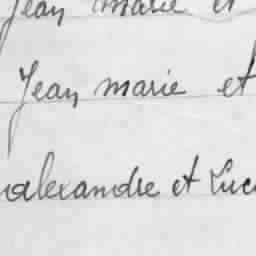 Jean marie et
Jean marie et
alexandre et Luc